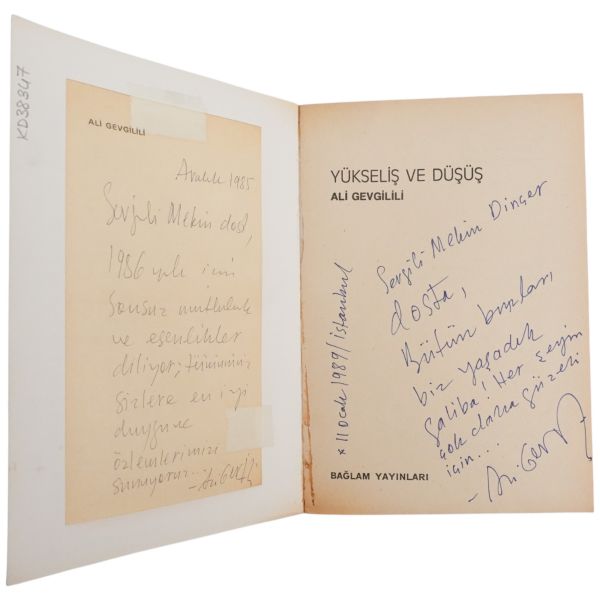 KD38347
ALİ GEVGİLİLİ
Aralık 1985
Sevgili Mekin dost,
1986 yılı için
sonsuz mutluluk
ve esenlikler
diliyor; tümümüz
sizlere en iyi
duygu ve
özlemlerimizi
sunuyoruz...
YÜKSELİŞ VE DÜŞÜŞ
ALİ GEVGİLİLİ
Sevgili Mekin Dinçer
dosta,
Bütün bunları
biz yaşadık
galiba! Her şeyin
çok daha güzeli
için...
x 11 Ocak 1989/İstanbul
BAĞLAM YAYINLARI